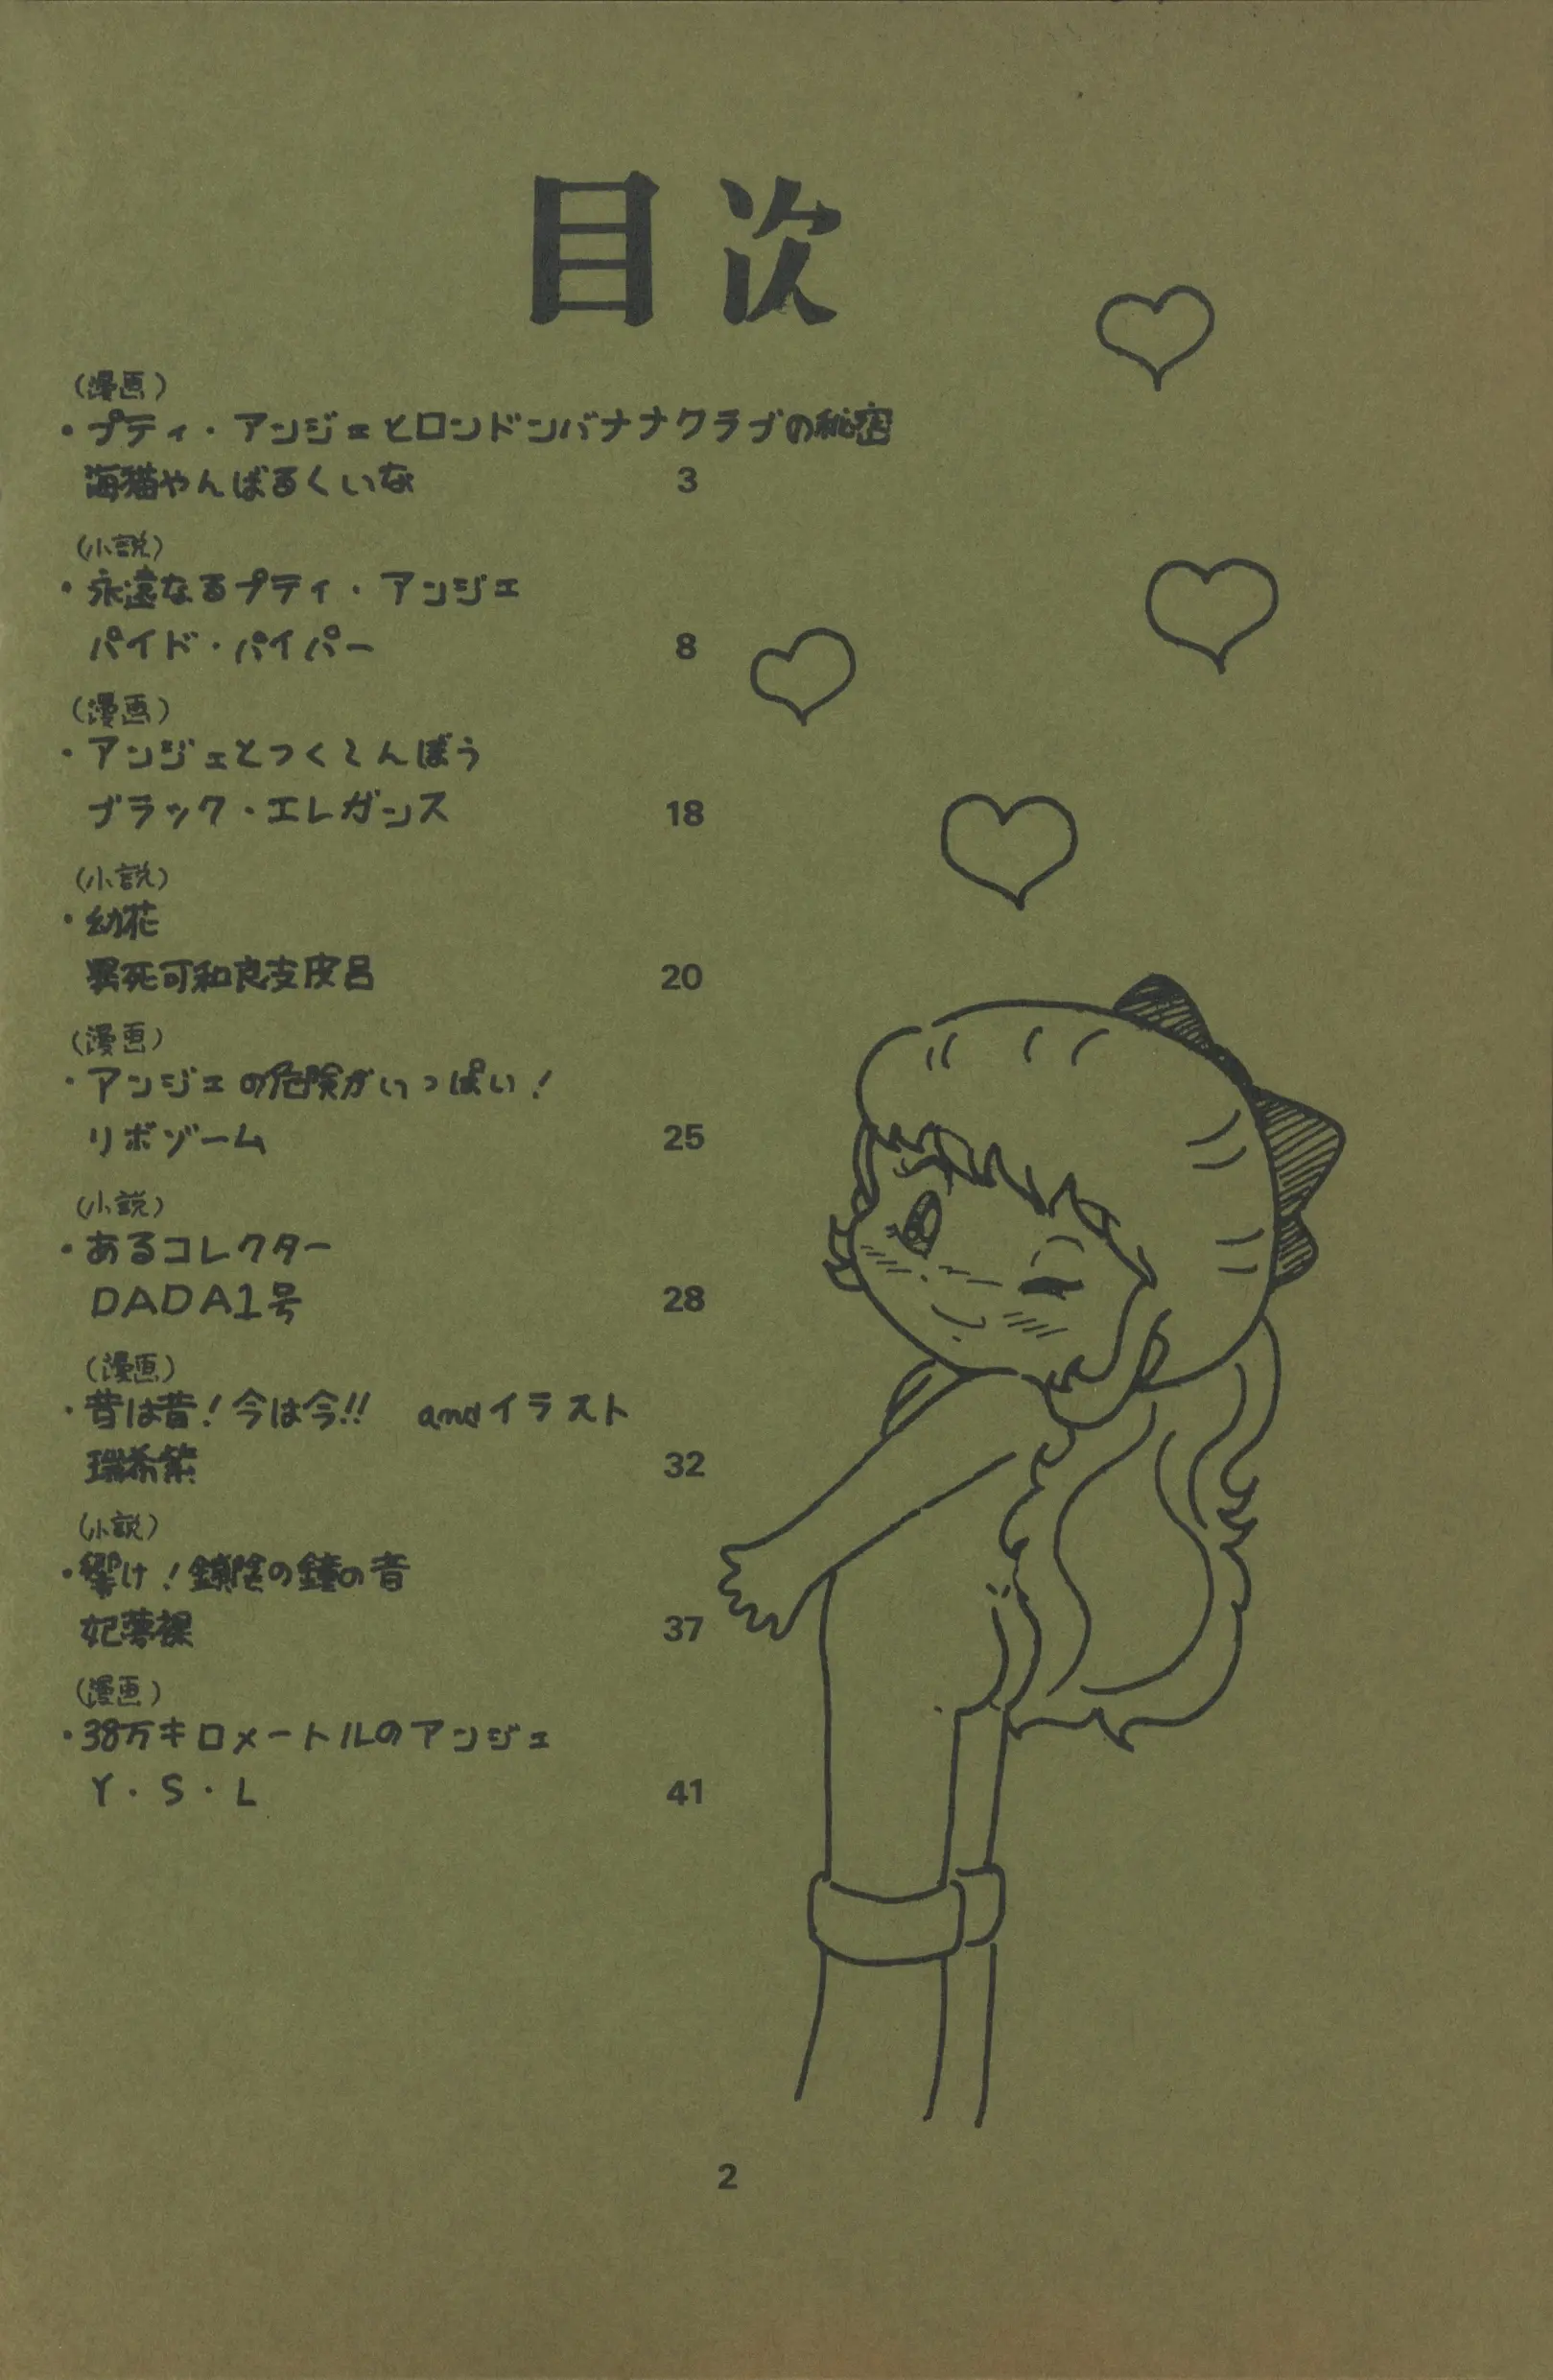 目次
(漫画)
・プティ・アンジェとロンドンバナナクラブの秘密
海猫やんばるくいな 3
(小説)
・永遠なるプティ・アンジェ
パイド・パイパー 8
(漫画)
・アンジェとつくしんぼう
ブラック・エレガンス 18
(小説)
・幼花
死可和良支皮呂 20
(漫画)
・アンジェの危険がいっぱい!
リボゾーム 25
(小説)
・あるコレクター
DADA1号 28
(漫画)
・昔は昔!今は今!! andイラスト
瑞希紫 32
(小説)
・響け!鎮陰の鐘の音
妃夢裸 37
(漫画)
・38万キロメートルのアンジェ
Y・S・L 41
2